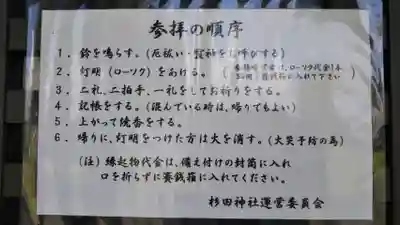 参拝の順序
1. 鈴を鳴らす。(厄祓い・龍神をお呼びする)
2. 灯明(ローソク)をあげる。
ローソク代金1本
50円 賽銭箱に入れて下さい
3. 二礼、二拍手、一礼をしてお祈りをする。
4. 記帳をする。(混んでいる時は、帰りでもよい)
5. 上がって焼香をする。
6. 帰りに、灯明をつけた方は火を消す。(火災予防の為)
(注)縁起物代金は、備え付けの封筒に入れ
口を折らずに賽銭箱に入れてください。
杉田神社運営委員会